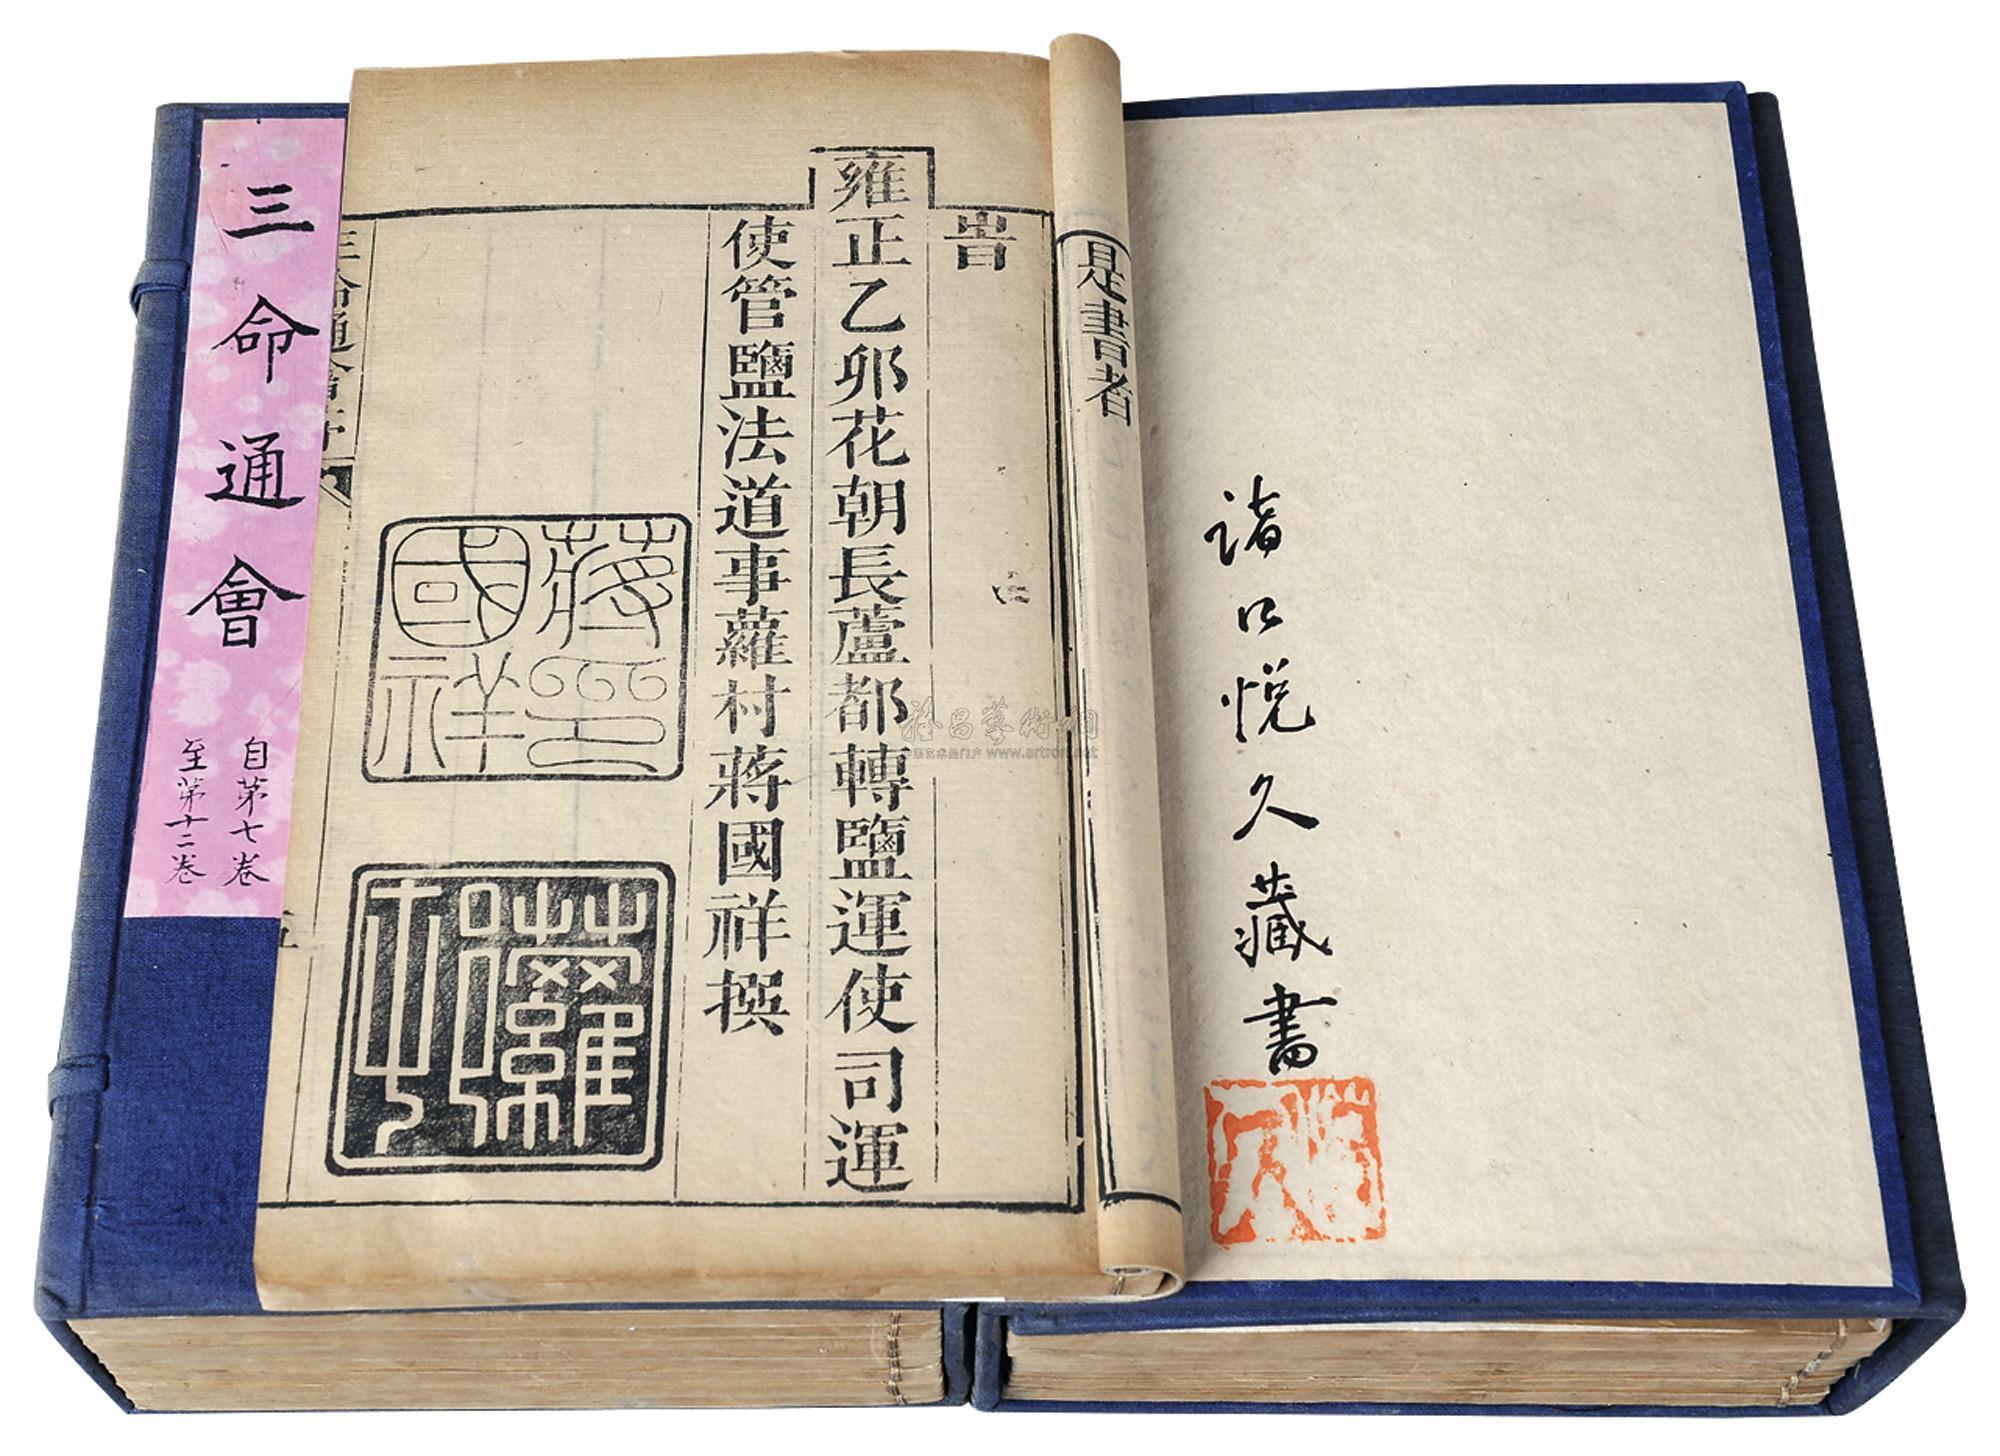 三命通會
自第七卷
至第十二卷
是書者
旹
雍正乙卯花朝長蘆都轉鹽運使司運
使管鹽法道事蘿村蔣國祥撰
蔣國祥印
蘿村
三命通會序
五
悅久藏書
www.artron.net